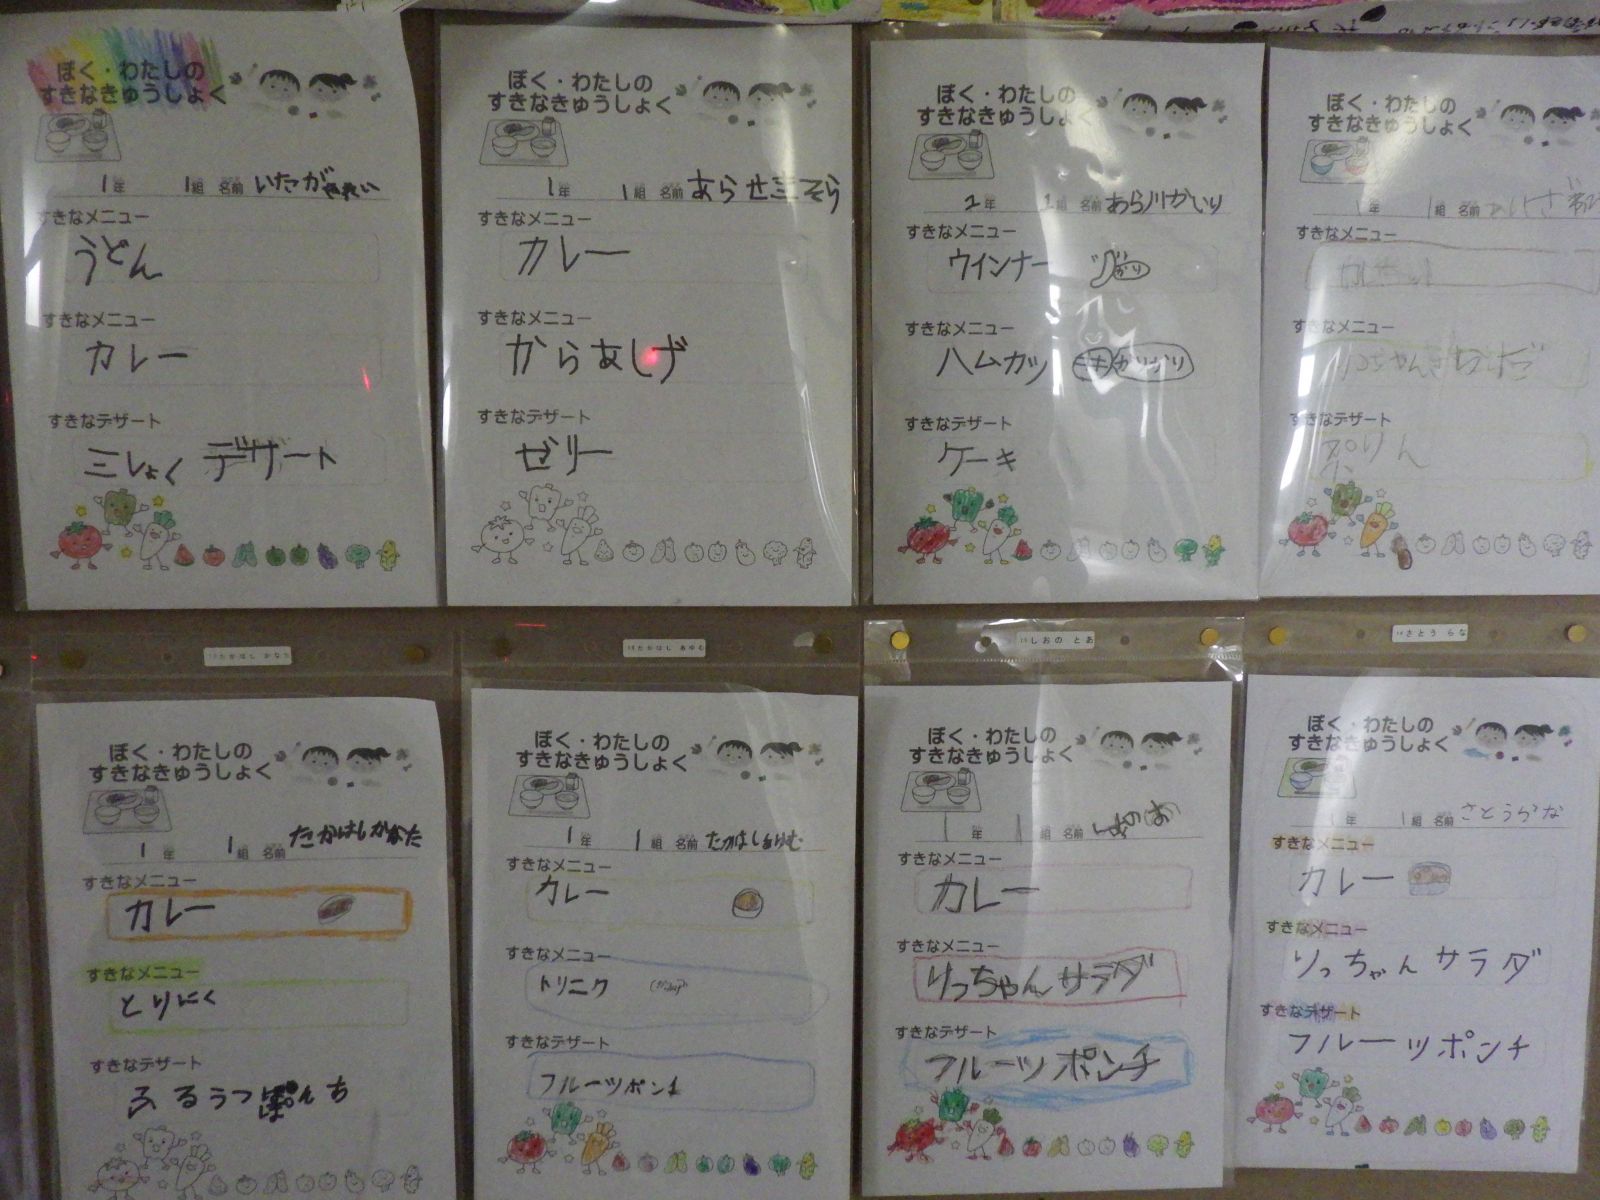 ぼく・わたしの
すきなきゅうしょく
1年 1組 名前
すきなメニュー
うどん
すきなメニュー
カレー
すきなデザート
三しょく デザート
ぼく・わたしの
すきなきゅうしょく
1年 1組 名前 あらせ三そら
すきなメニュー
カレー
すきなメニュー
からあしげ
すきなデザート
ゼリー
ぼく・わたしの
すきなきゅうしょく
1組 名前 あら川かいり
すきなメニュー
ウインナー
すきなメニュー
ハムカツ
すきなデザート
ケーキ
ぼく・わたしの
すきなきゅうしょく
1年 1組 名前
すきなメニュー
すきなメニュー
すきなデザート
たかはし かなた
ぼく・わたしの
すきなきゅうしょく
1年 1組 名前 たかはしかなた
すきなメニュー
カレー
すきなメニュー
とりにく
すきなデザート
ふるうつぽんち
たかはし あゆむ
ぼく・わたしの
すきなきゅうしょく
1年 1組 名前 たかはしあゆむ
すきなメニュー
カレー
すきなメニュー
トリニク
すきなデザート
フルーツポンチ
しおの とあ
ぼく・わたしの
すきなきゅうしょく
1年 1組 名前
すきなメニュー
カレー
すきなメニュー
りっちゃんサラダ
すきなデザート
フルーツポンチ
さとう らな
ぼく・わたしの
すきなきゅうしょく
1年 1組 名前 さとうらな
すきなメニュー
カレー
すきなメニュー
りっちゃんサラダ
すきなデザート
フルーツポンチ